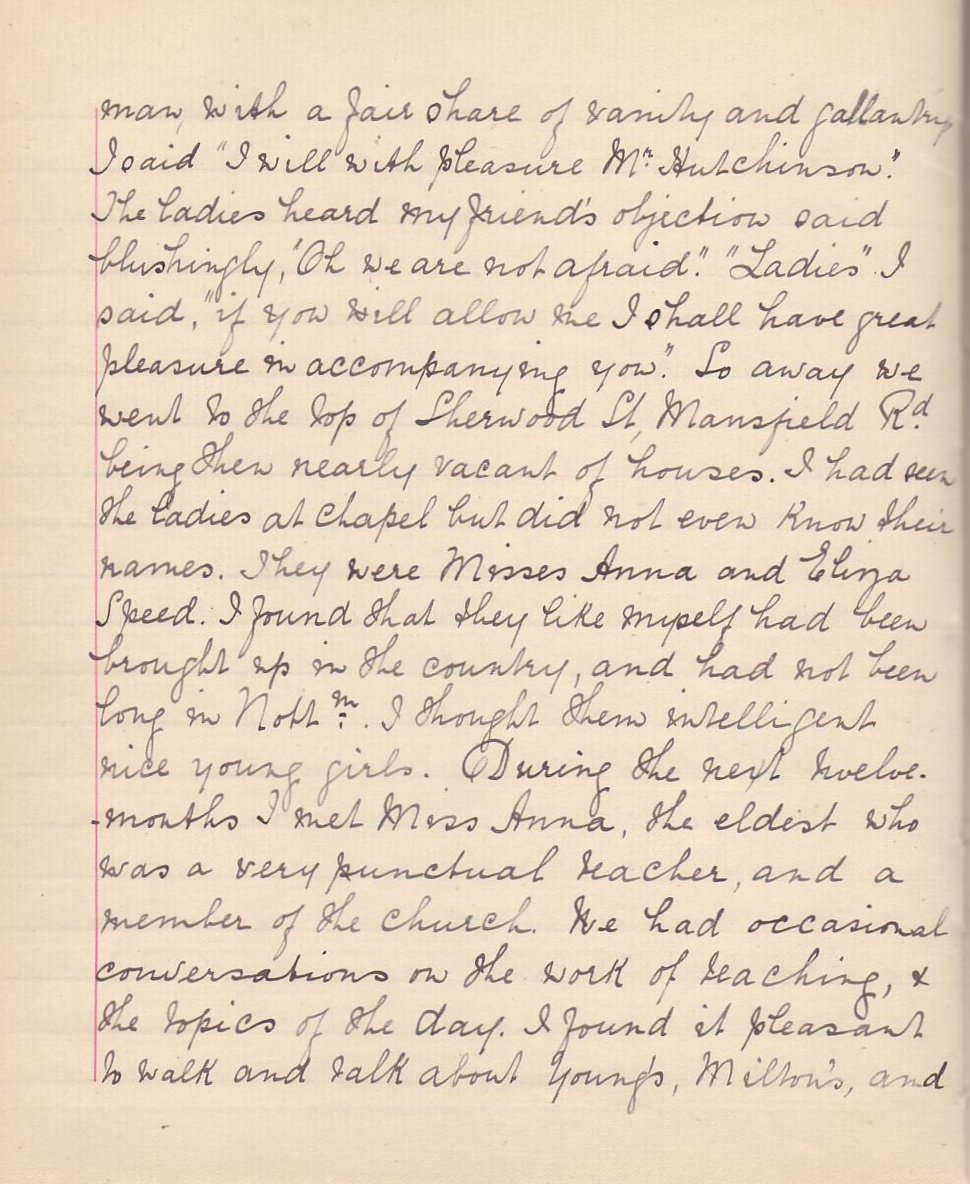 man, with a fair share of vanity and gallantry
I said "I will with pleasure Mr. Hutchinson."
The ladies heard my friend's objection said
blushingly, "Oh we are not afraid". "Ladies" I
said, "if you will allow me I shall have great
pleasure in accompanying you". So away we
went to the top of Sherwood St, Mansfield Rd.
being then nearly vacant of houses. I had seen
the ladies at chapel but did not even know their
names. They were Misses Anna and Eliza
Speed. I found that they like myself had been
brought up in the country, and had not been
long in Nottm. I thought them intelligent
nice young girls. During the next twelve-
-months I met Miss Anna, the eldest who
was a very punctual teacher, and a
member of the church. We had occasional
conversations on the work of teaching, &
the topics of the day. I found it pleasant
to walk and talk about Young's, Milton's, and